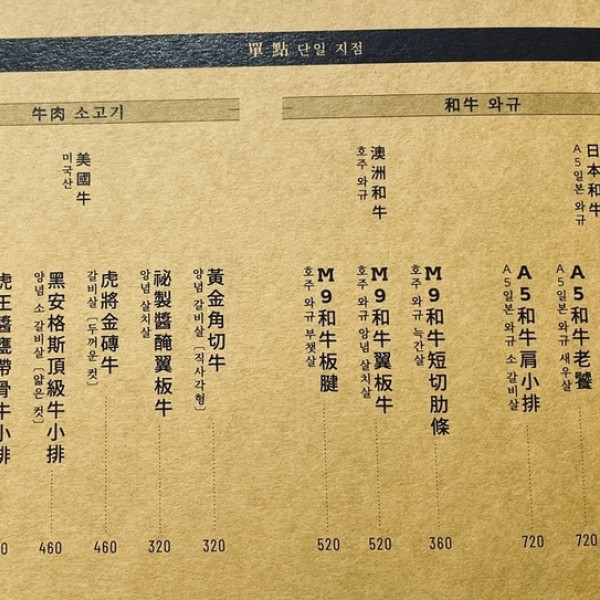 單點 단일 지점
和牛 와규
日本和牛
A5일본 와규
A5和牛老饕
A5일본 와규 새우살
720
A5和牛肩小排
A5일본 와규 소 갈비살
720
澳洲和牛
호주 와규
M9和牛短切肋條
호주 와규 늑간살
360
M9和牛翼板牛
호주 와규 양념 살치살
520
M9和牛板腱
호주 와규 부챗살
520
牛肉 소고기
美國牛
미국산
黃金角切牛
양념 갈비살 [직사각형]
320
祕製醬醃翼板牛
양념 살치살
320
虎將金磚牛
갈비살 [두꺼운 컷]
460
黑安格斯頂級牛小排
양념 소 갈비살 [얇은 컷]
460
虎王醬甕帶骨牛小排
0